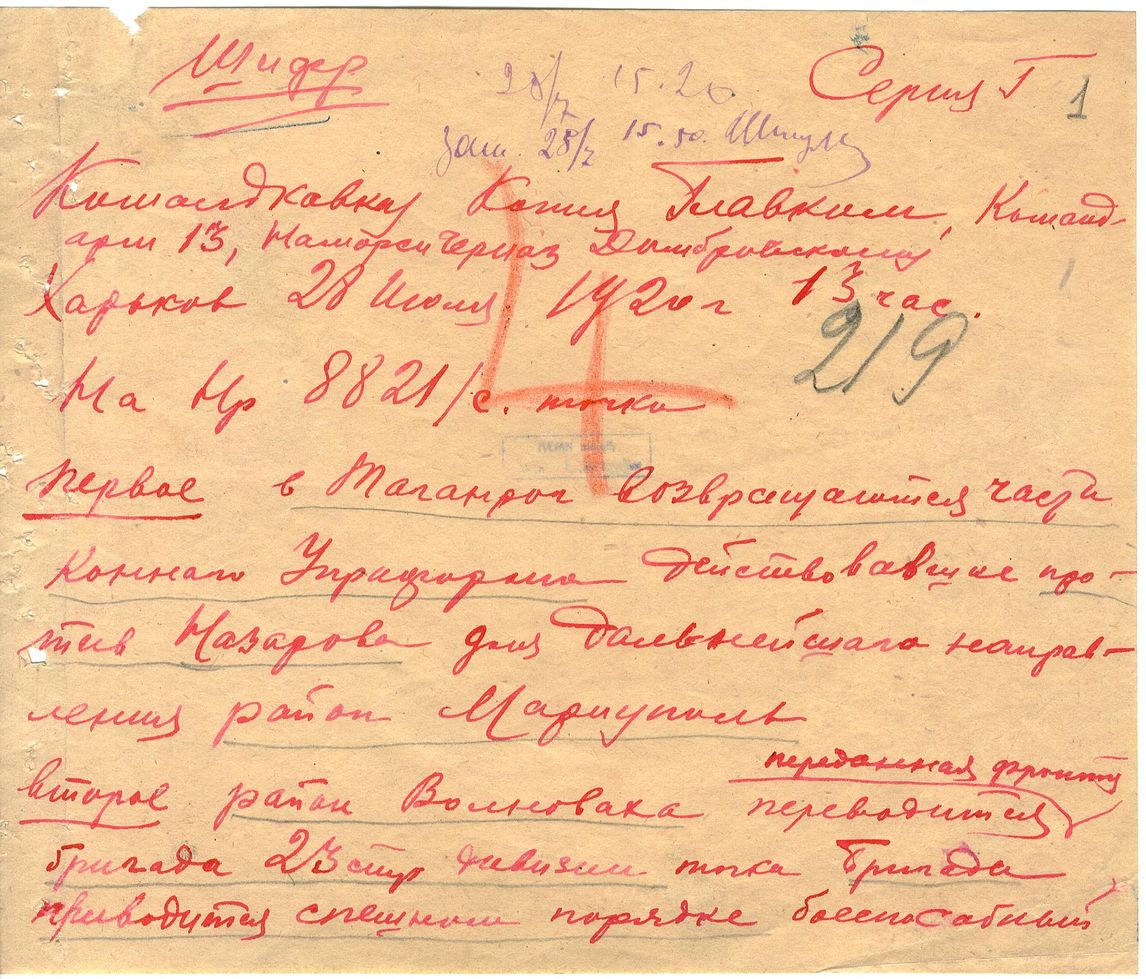 Шифр
Серия Г 1
28/7 15.20
заш. 28/7 15.50.
Командкавказ Копия Главком, Команд-
арм 13, Наморси Черказ Домбровскому
Харьков 28 Июля 1920 г 13 час.
219
На Нр 8821/с. точка
первое в Таганрог возвращаются части
Коннаго действовавшие про-
тив Назарова для дальнейшаго направ-
ления район Мариуполь
переданная фронту
второе район Волноваха переводится
бригада 23 стр дивизии точка Бригада
приводится спешном порядке боеспособный